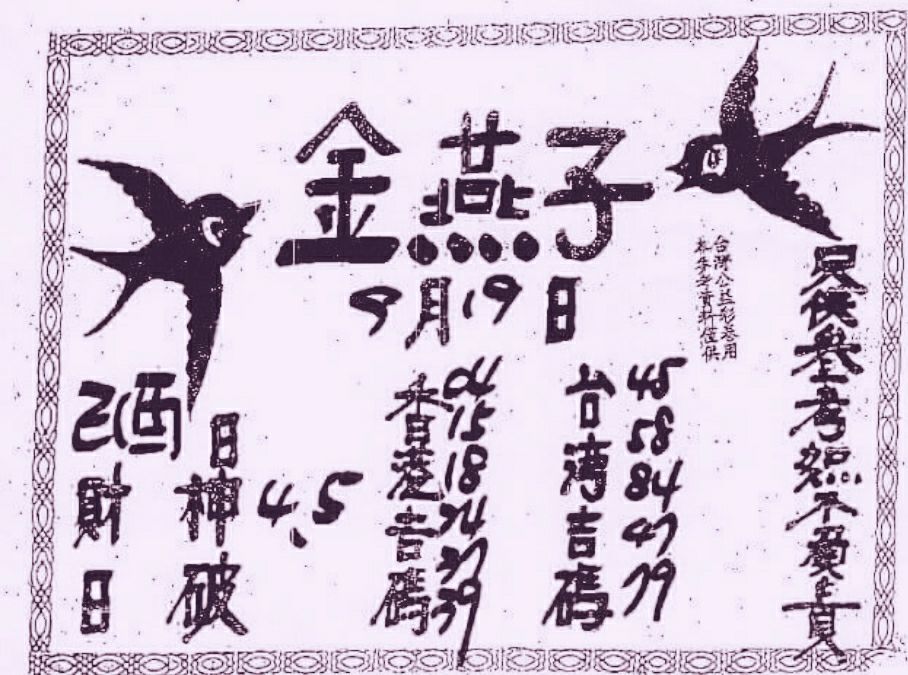 金燕子
9月19日
只供参考恕不負責
台灣公益彩卷用
本参考資料僅供
台湾吉碼
45
58
84
47
79
香港吉碼
04
15
18
37
39
己酉日
財神 4.5
日破